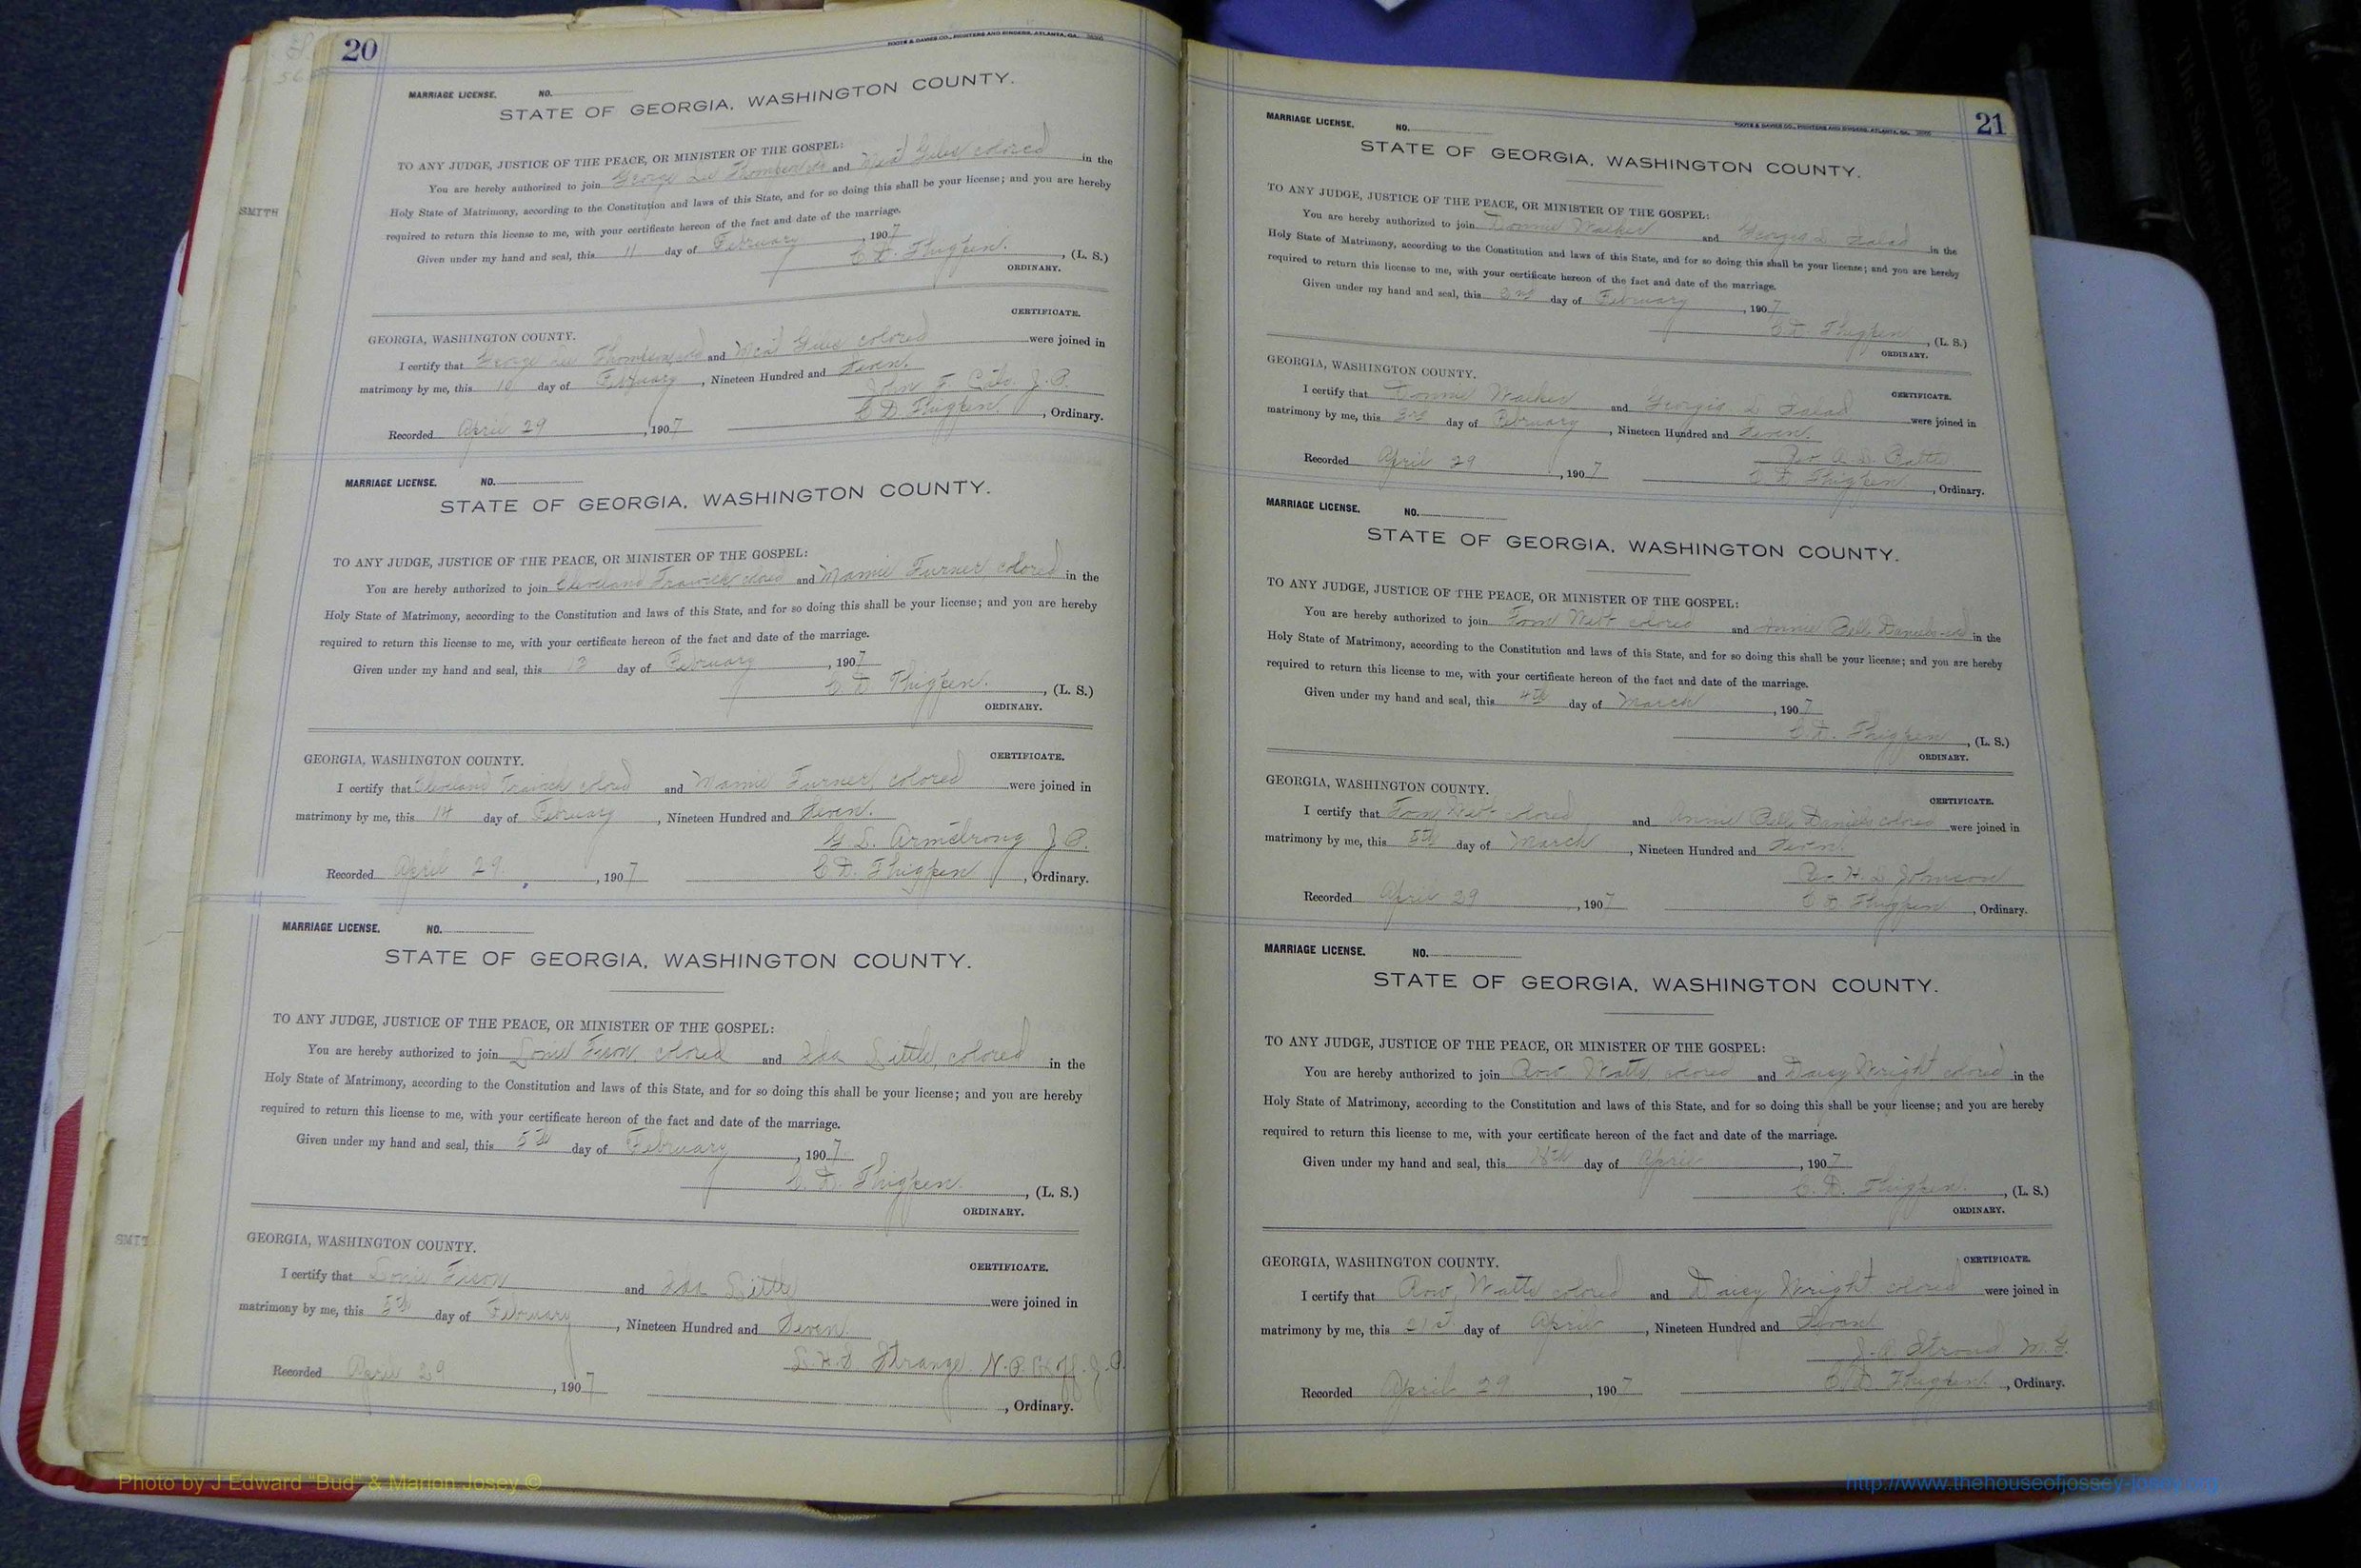 20
FOOTE & DAVIES CO., PRINTERS AND BINDERS, ATLANTA, GA.
MARRIAGE LICENSE. NO.
STATE OF GEORGIA, WASHINGTON COUNTY.
TO ANY JUDGE, JUSTICE OF THE PEACE, OR MINISTER OF THE GOSPEL:
You are hereby authorized to join George Lee and Giles colored in the
Holy State of Matrimony, according to the Constitution and laws of this State, and for so doing this shall be your license; and you are hereby
required to return this license to me, with your certificate hereon of the fact and date of the marriage.
Given under my hand and seal, this 11 day of February, 1907
C. D. Thigpen, (L. S.)
ORDINARY.
CERTIFICATE.
GEORGIA, WASHINGTON COUNTY.
I certify that George Lee and Giles colored were joined in
matrimony by me, this day of February, Nineteen Hundred and Seven.
John F. J. P.
Recorded April 29, 1907 C D Thigpen, Ordinary.
MARRIAGE LICENSE. NO.
STATE OF GEORGIA, WASHINGTON COUNTY.
TO ANY JUDGE, JUSTICE OF THE PEACE, OR MINISTER OF THE GOSPEL:
You are hereby authorized to join Cleveland Trawick colored and Mamie Turner, colored in the
Holy State of Matrimony, according to the Constitution and laws of this State, and for so doing this shall be your license; and you are hereby
required to return this license to me, with your certificate hereon of the fact and date of the marriage.
Given under my hand and seal, this 13 day of February, 1907
C. D. Thigpen, (L. S.)
ORDINARY.
CERTIFICATE.
GEORGIA, WASHINGTON COUNTY.
I certify that Cleveland Trawick colored and Mamie Turner, colored were joined in
matrimony by me, this 14 day of February, Nineteen Hundred and Seven.
G L. Armstrong J. P.
Recorded April 29, 1907 C. D. Thigpen, Ordinary.
MARRIAGE LICENSE. NO.
STATE OF GEORGIA, WASHINGTON COUNTY.
TO ANY JUDGE, JUSTICE OF THE PEACE, OR MINISTER OF THE GOSPEL:
You are hereby authorized to join Lonie Tison, colored and Ida Little, colored in the
Holy State of Matrimony, according to the Constitution and laws of this State, and for so doing this shall be your license; and you are hereby
required to return this license to me, with your certificate hereon of the fact and date of the marriage.
Given under my hand and seal, this 5th day of February, 1907
C. D. Thigpen, (L. S.)
ORDINARY.
GEORGIA, WASHINGTON COUNTY.
CERTIFICATE.
I certify that Lonie Tison and Ida Little were joined in
matrimony by me, this 5th day of February, Nineteen Hundred and Seven.
Strange N. P.
Recorded April 29, 1907, Ordinary.
21
FOOTE & DAVIES CO., PRINTERS AND BINDERS, ATLANTA, GA.
MARRIAGE LICENSE. NO.
STATE OF GEORGIA, WASHINGTON COUNTY.
TO ANY JUDGE, JUSTICE OF THE PEACE, OR MINISTER OF THE GOSPEL:
You are hereby authorized to join Walker and Georgia L. in the
Holy State of Matrimony, according to the Constitution and laws of this State, and for so doing this shall be your license; and you are hereby
required to return this license to me, with your certificate hereon of the fact and date of the marriage.
Given under my hand and seal, this day of February, 1907
C. D. Thigpen, (L. S.)
ORDINARY.
GEORGIA, WASHINGTON COUNTY.
CERTIFICATE.
I certify that Walker and Georgia L were joined in
matrimony by me, this day of February, Nineteen Hundred and Seven.
Rev
Recorded April 29, 1907 C. D. Thigpen, Ordinary.
MARRIAGE LICENSE. NO.
STATE OF GEORGIA, WASHINGTON COUNTY.
TO ANY JUDGE, JUSTICE OF THE PEACE, OR MINISTER OF THE GOSPEL:
You are hereby authorized to join Tom colored and Annie Bell Daniels in the
Holy State of Matrimony, according to the Constitution and laws of this State, and for so doing this shall be your license; and you are hereby
required to return this license to me, with your certificate hereon of the fact and date of the marriage.
Given under my hand and seal, this 4th day of March, 1907
C. D. Thigpen, (L. S.)
ORDINARY.
GEORGIA, WASHINGTON COUNTY.
CERTIFICATE.
I certify that Tom colored and Annie Bell Daniels colored were joined in
matrimony by me, this 5th day of March, Nineteen Hundred and Seven.
Rev H. L Johnson
Recorded April 29, 1907 C. D. Thigpen, Ordinary.
MARRIAGE LICENSE. NO.
STATE OF GEORGIA, WASHINGTON COUNTY.
TO ANY JUDGE, JUSTICE OF THE PEACE, OR MINISTER OF THE GOSPEL:
You are hereby authorized to join Watts colored and Daisy Wright colored in the
Holy State of Matrimony, according to the Constitution and laws of this State, and for so doing this shall be your license; and you are hereby
required to return this license to me, with your certificate hereon of the fact and date of the marriage.
Given under my hand and seal, this day of April, 1907
C. D. Thigpen, (L. S.)
ORDINARY.
GEORGIA, WASHINGTON COUNTY.
CERTIFICATE.
I certify that Watts colored and Daisy Wright colored were joined in
matrimony by me, this 21st day of April, Nineteen Hundred and Seven
Strond M. G.
Recorded April 29, 1907 C. D. Thigpen, Ordinary.
SMITH
SMIT
Photo by J Edward "Bud" & Marion Josey ©
http://www.thehouseofjossey-josey.org